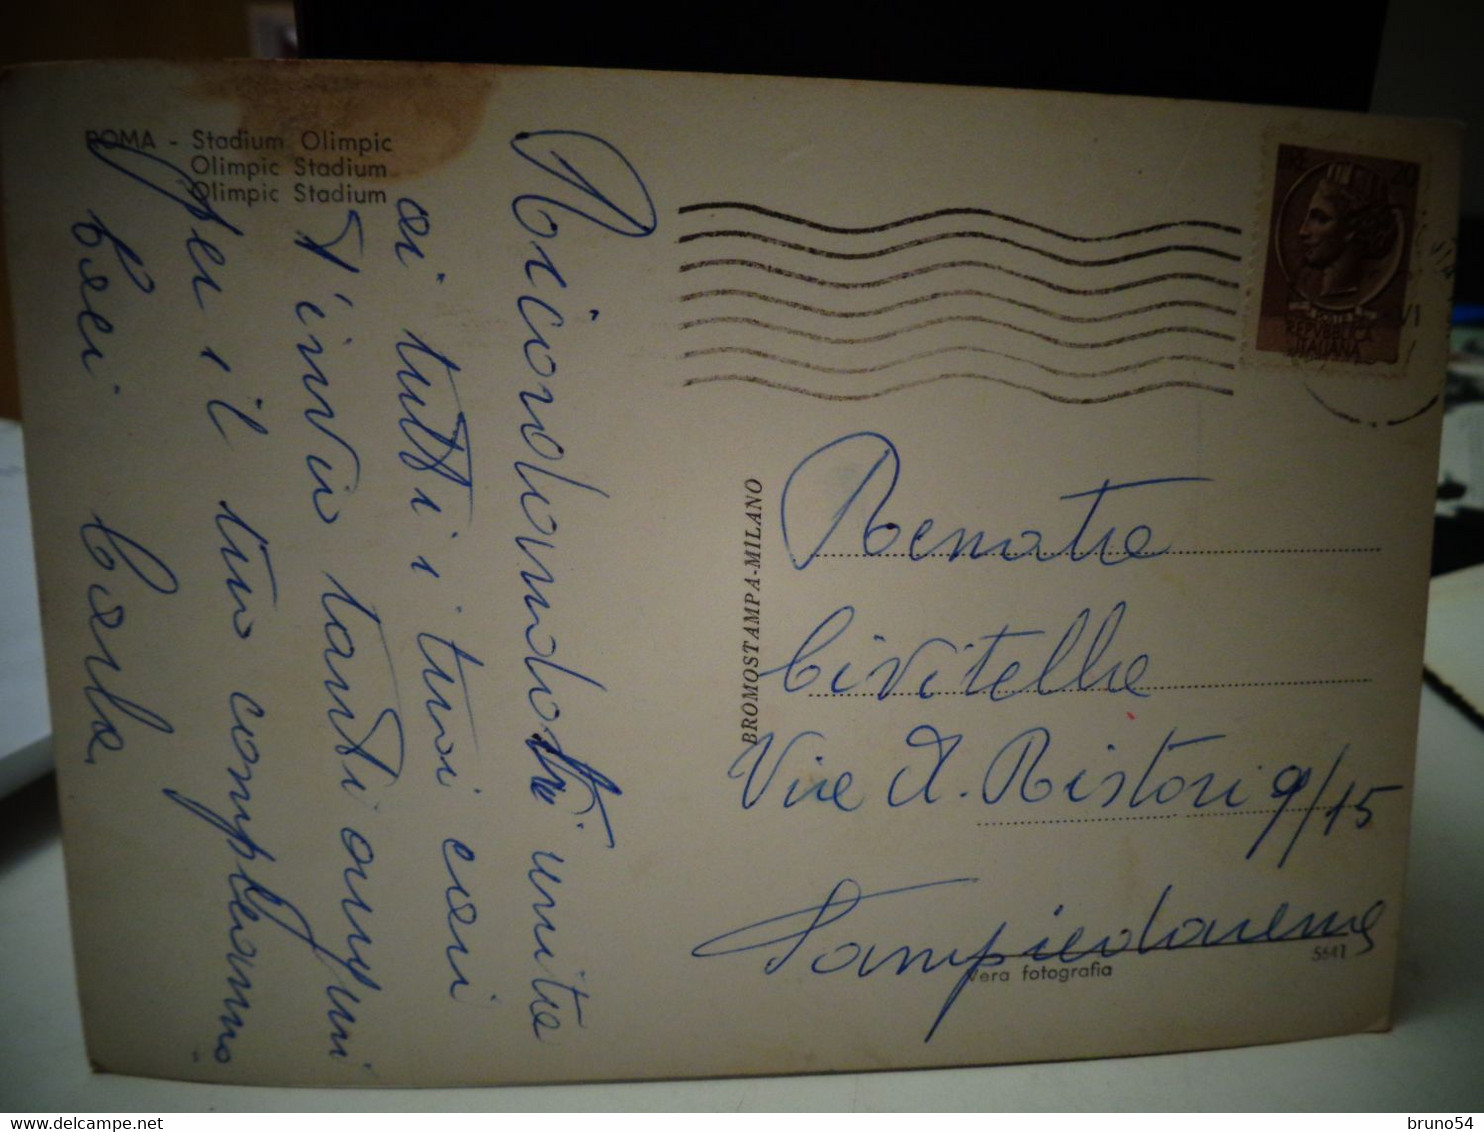 ROMA - Stadium Olimpic
Olimpic Stadium
Olimpic Stadium
Ricordandoti unita
ai tutti i tuoi cari
t'invio tanti auguri
per il tuo compleanno
baci Carla
BROMOSTAMPA-MILANO
LIRE 20
POSTE
REPVBBLICA
ITALIANA
VI
Renata
Civitella
Via A. Ristori 9/15
Sampierdarena
Vera fotografia
5641
delcampe.net
bruno54